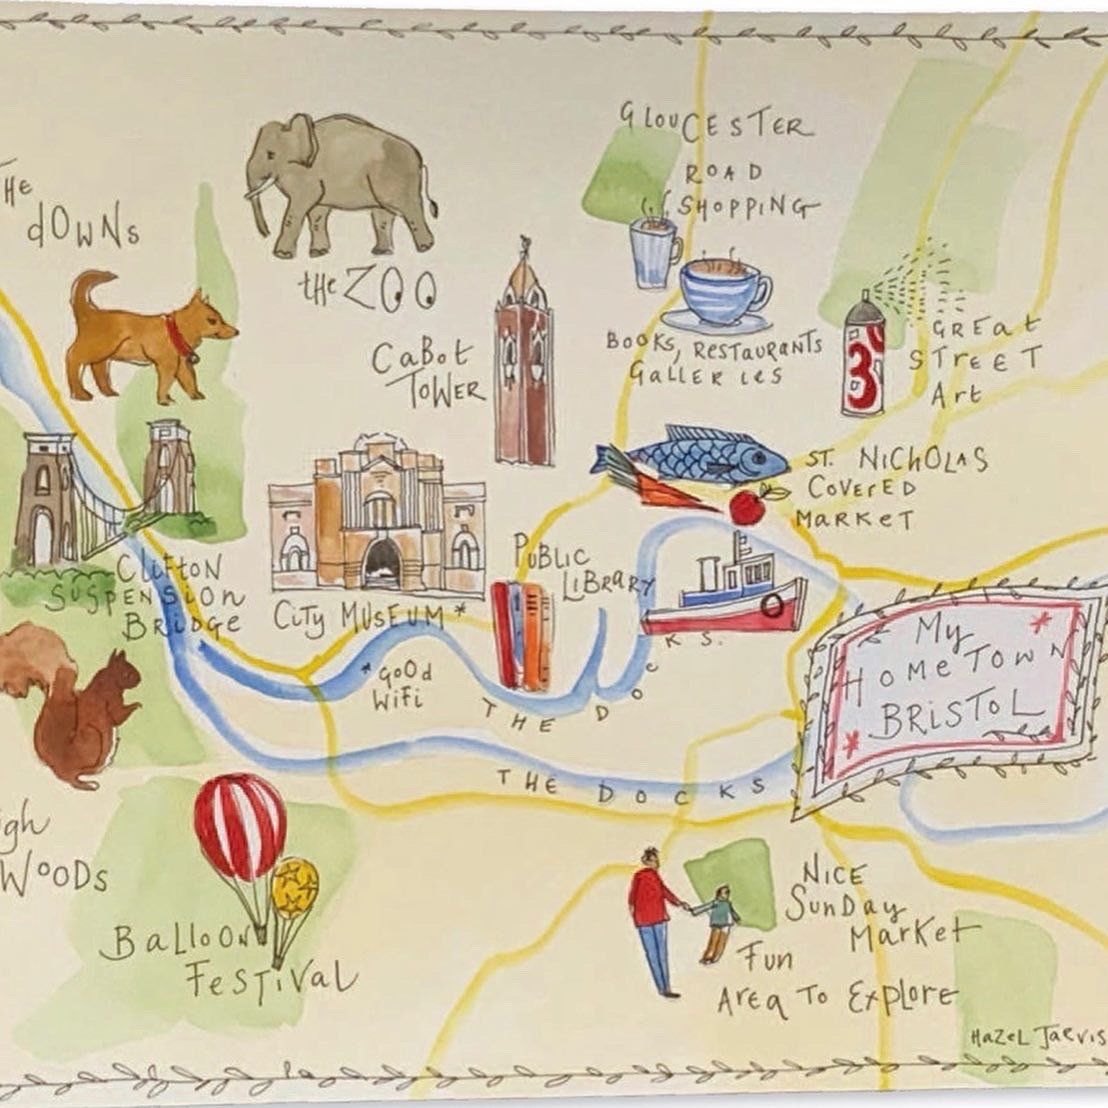 THE
DOWNS
the ZOO
GLOUCESTER
ROAD
SHOPPING
CABOT
TOWER
BOOKS, RESTAURANTS
GALLERIES
3
GREAT
STREET
Art
ST. NICHOLAS
COVERED
MARKET
CLIFTON
SUSPENSION
BRIDGE
CITY MUSEUM*
*GOOD
WIFI
PUBLIC
LIBRARY
THE DOCKS.
THE DOCKS
*
MY
HOMETOWN
BRISTOL
*
igh
WOODS
BALLOON
FESTIVAL
NICE
SUNDAY
MARKET
FUN
AREA TO EXPLORE
HAZEL JARVIS